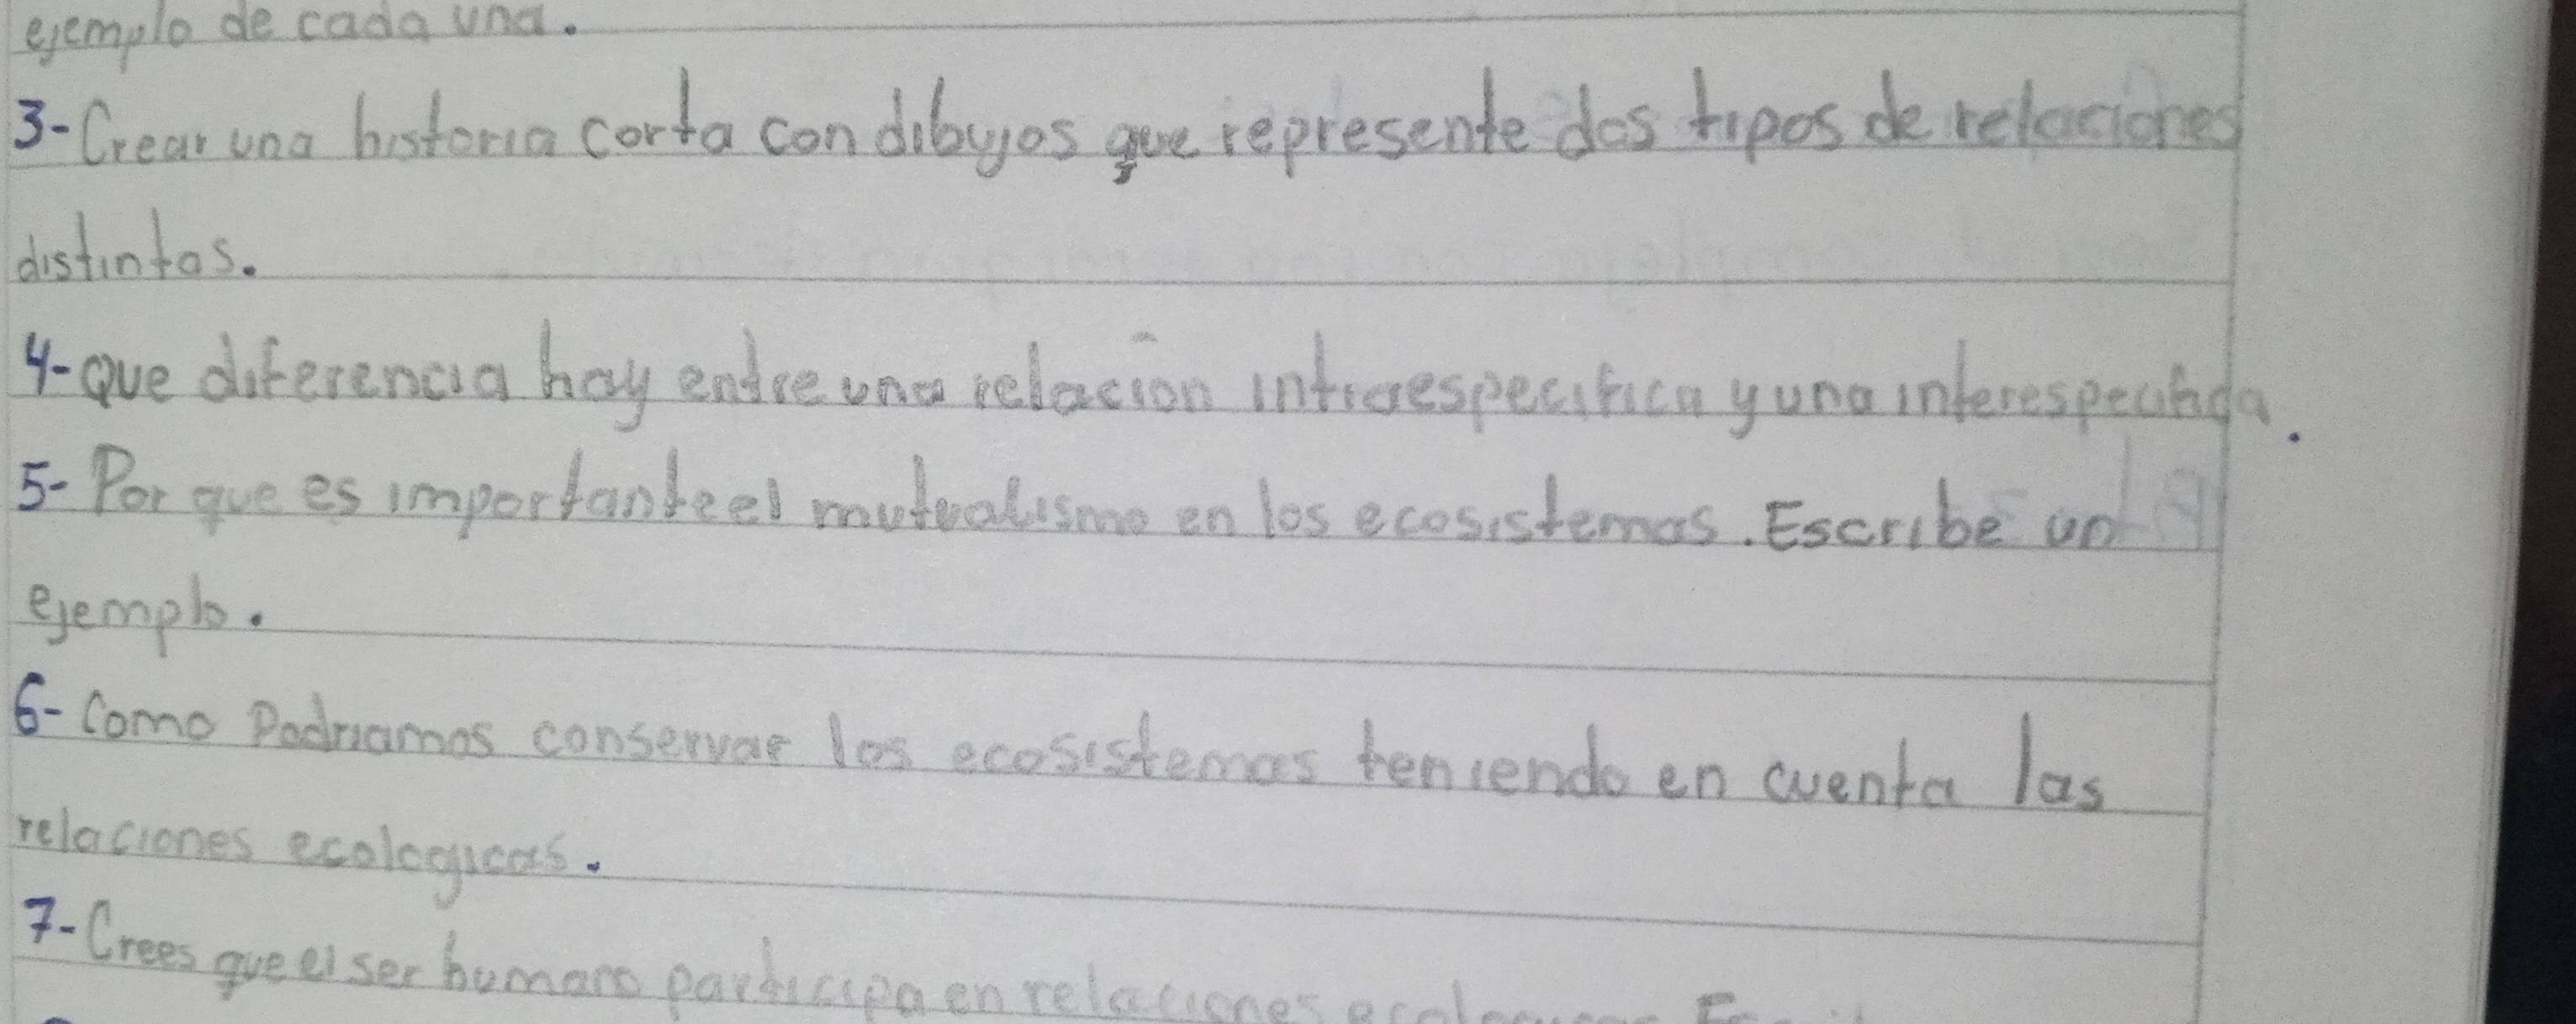 ejemplo de cada una.
3- Crear una historia corta con dibujos que represente dos tipos de relaciones
distintas.
4- Que diferencia hay entre una relacion intraespecifica y una interespecifica.
5- Por que es importante el mutualismo en los ecosistemas. Escribe un
ejemplo.
6- Como Podriamos conservar los ecosistemas teniendo en cuenta las
relaciones ecologicas.
7- Crees que el ser humano participa en relaciones